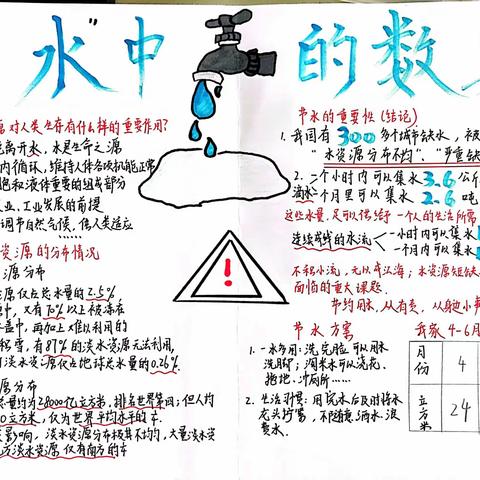 水"中
的数
对人类生存有什么样的重要作用?
离开水,水是生命之源
内循环,维持人体各项机能正常
胞和液体重要的组成部分
业、工业发展的前提
调节自然气候,使人类适应
……
资源的分布情况
源分布
源仅占总水量的2.5%,
中,又有70%以上被冻在
盖中,再加上难以利用的
积雪,有87%的淡水资源无法利用,
淡水资源仅占地球总水量的0.26%.
源分布
总量约为28000亿立方米,排名世界第四;但人均
00立方米,仅为世界平均水平的
影响,淡水资源分布极其不均匀,大量淡水资
方淡水资源仅有南方的
节水的重要性(结记)
1. 我国有300多个城市缺水,被
"水资源分布不均"、"严重缺
2. 滴水
一个小时内可以集水3.6公斤
一个月里可以集水2.6吨
这些水量,足可以维持一个人的生活所需
连续成线的水流
一小时内可以集水
一个月内可以集水
不积小流,无以成江海;水资源短缺
面临的重大课题.
节约用水,从有责,从身边小
节水方案
1. 一水多用:洗完脸可以用来
洗脚;淘米水可以浇花、
拖地、冲厕所……
2. 生活习惯:用完水后及时将水
龙头拧紧,不随意洒水、浪
费水.
我家4-6月
月份 4
立方米 24